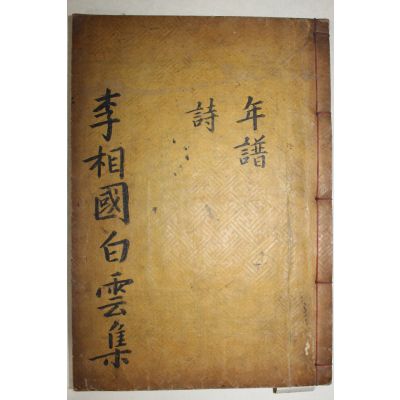 年譜
詩
李相國白雲集